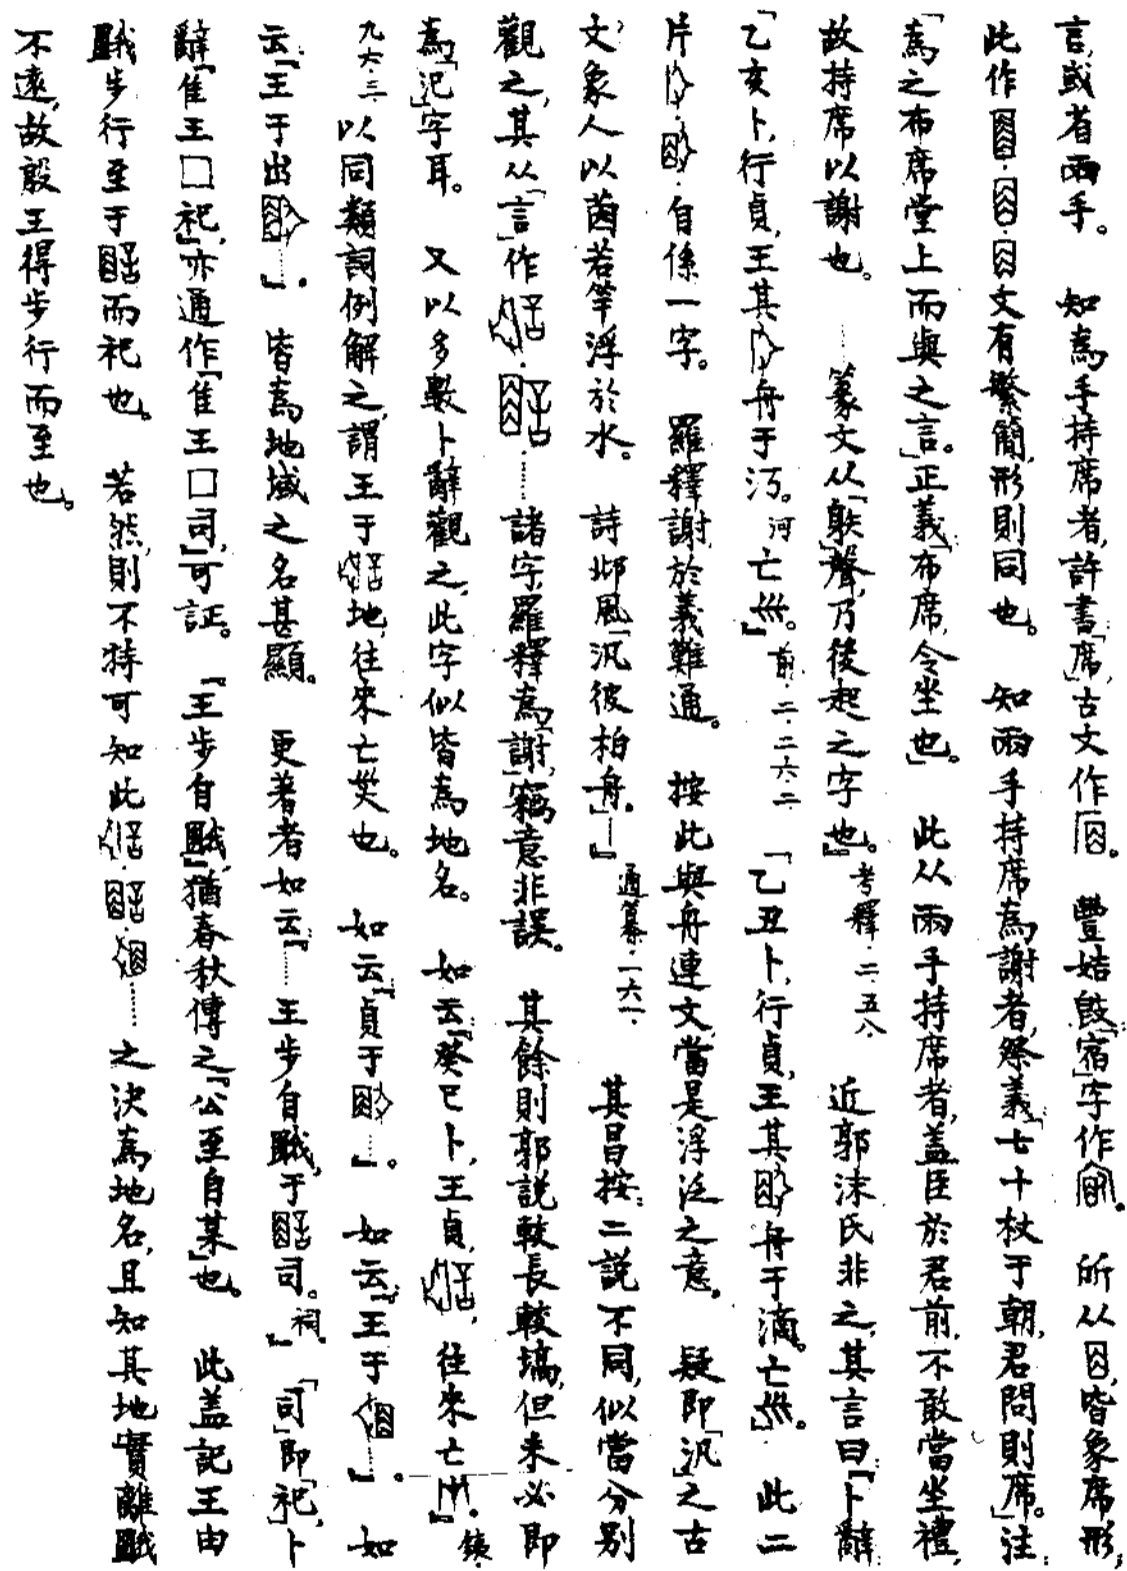 言,或省兩手。 知爲手持席者,許書「席」,古文作。 豐姞𣪘「宿」字作。 所从,皆象席形;
此作文有繁簡,形則同也。 知兩手持席爲謝者,祭義:「七十杖于朝,君問則席。」注:
「爲之布席堂上而與之言。」正義「布席,令坐也。」 此从兩手持席者,蓋臣於君前,不敢當坐禮,
故持席以謝也。 ……篆文从「䠶」聲,乃後起之字也。』考釋·二·五八· 近郭沫氏非之,其言曰:『卜辭:
「乙亥卜,行貞,王其舟于㴃。河亡𡿧。』前·二·二六·二· 「乙丑卜,行貞,王其舟于滴。亡𡿧。 此二
片··自係一字。 羅釋謝,於義難通。 按此與舟連文,當是浮泛之意。 疑即「汎」之古
文,象人以茵若筟浮於水。 詩邶風「汎彼柏舟」·……』通纂·一六一· 其昌按:二說不同,似當分別
觀之,其从「言」作·……諸字羅釋爲「謝」,竊意非誤。 其餘則郭說較長較塙,但未必即
爲「汜」字耳。 又以多數卜辭觀之,此字似皆爲地名。 如云:『癸巳卜,王貞,,往來亡』·錄·
九六·三· 以同類詞例解之,謂王于地,往來亡災也。 如云:『貞于……』· 如云:『王于……』· 如
云:『王于出……』· 皆爲地域之名甚顯。 更著者如云:『……王步自,于司。祠。』「司」即「祀」,卜
辭「隹王□祀」,亦通作「隹王□司」,可証。 『王步自』,猶春秋傳之『公至自某』也。 此蓋記王由
步行至于而祀也。 若然,則不特可知此··……之決爲地名,且知其地實離
不遠,故殷王得步行而至也。